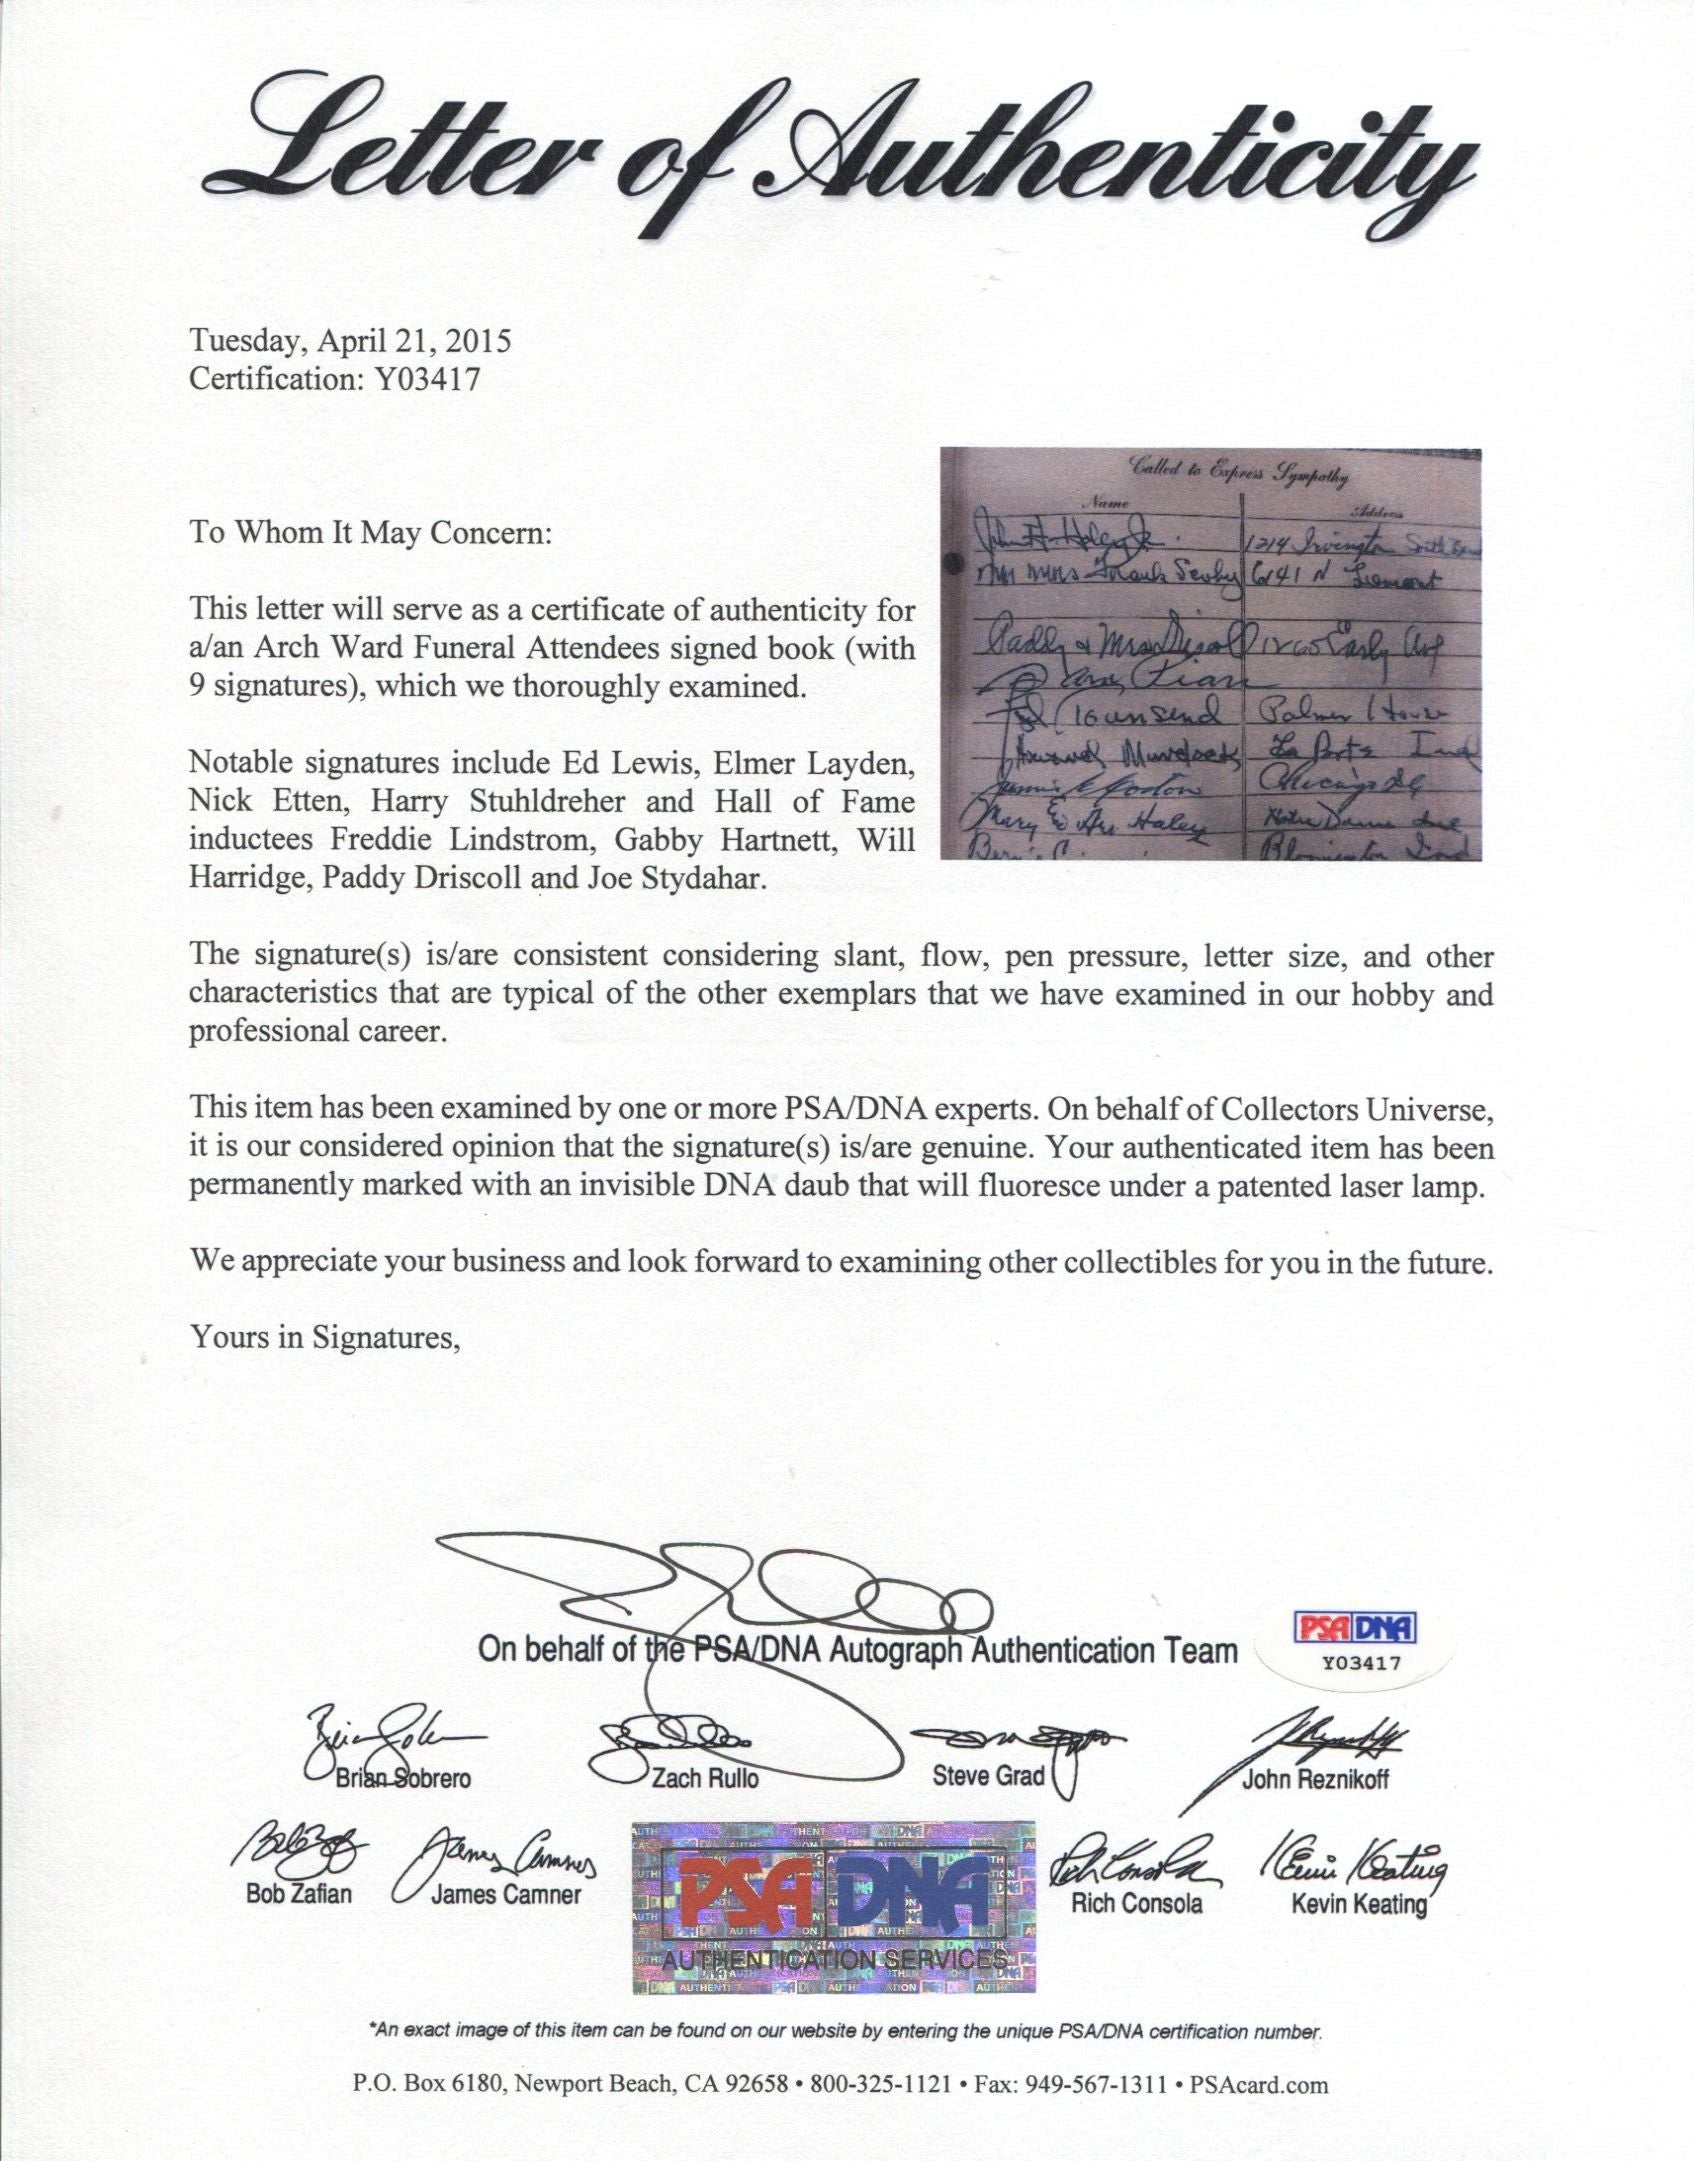 Letter of Authenticity
Tuesday, April 21, 2015
Certification: Y03417
To Whom It May Concern:
This letter will serve as a certificate of authenticity for
a/an Arch Ward Funeral Attendees signed book (with
9 signatures), which we thoroughly examined.
Notable signatures include Ed Lewis, Elmer Layden,
Nick Etten, Harry Stuhldreher and Hall of Fame
inductees Freddie Lindstrom, Gabby Hartnett, Will
Harridge, Paddy Driscoll and Joe Stydahar.
Called to Express Sympathy
Name Address
1214 Irvington
Mr Mrs Frank 6141 N
Paddy & Mrs Driscoll 1265 Early Ave
Townsend Palmer House
Howard Murdock La Porte Ind
Chicago
Mary Haley Notre Dame Ind
Bloomington Ind
The signature(s) is/are consistent considering slant, flow, pen pressure, letter size, and other
characteristics that are typical of the other exemplars that we have examined in our hobby and
professional career.
This item has been examined by one or more PSA/DNA experts. On behalf of Collectors Universe,
it is our considered opinion that the signature(s) is/are genuine. Your authenticated item has been
permanently marked with an invisible DNA daub that will fluoresce under a patented laser lamp.
We appreciate your business and look forward to examining other collectibles for you in the future.
Yours in Signatures,
On behalf of the PSA/DNA Autograph Authentication Team
PSA DNA
Y03417
Brian Sobrero Zach Rullo Steve Grad John Reznikoff
Bob Zafian James Camner Rich Consola Kevin Keating
PSA DNA
AUTHENTICATION SERVICES
*An exact image of this item can be found on our website by entering the unique PSA/DNA certification number.
P.O. Box 6180, Newport Beach, CA 92658 • 800-325-1121 • Fax: 949-567-1311 • PSAcard.com